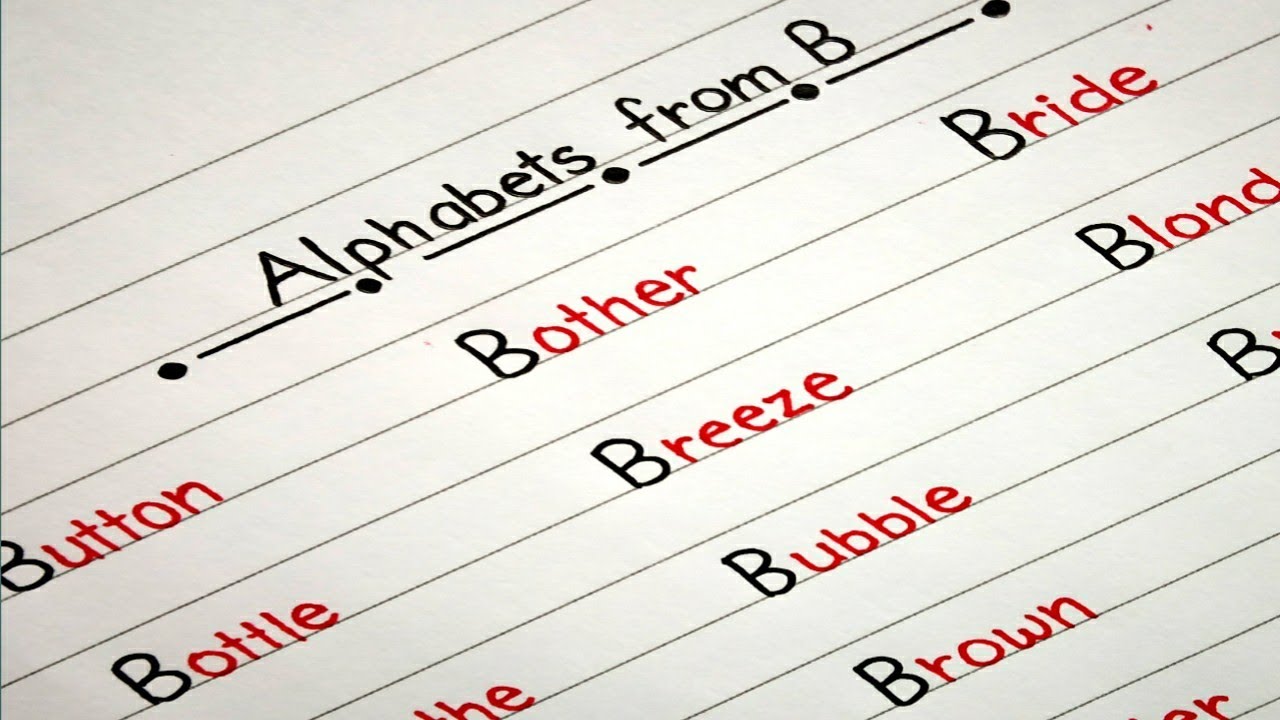 Alphabets from B
Button Bother Bride
Bottle Breeze Blond
the Bubble B
Brown
er